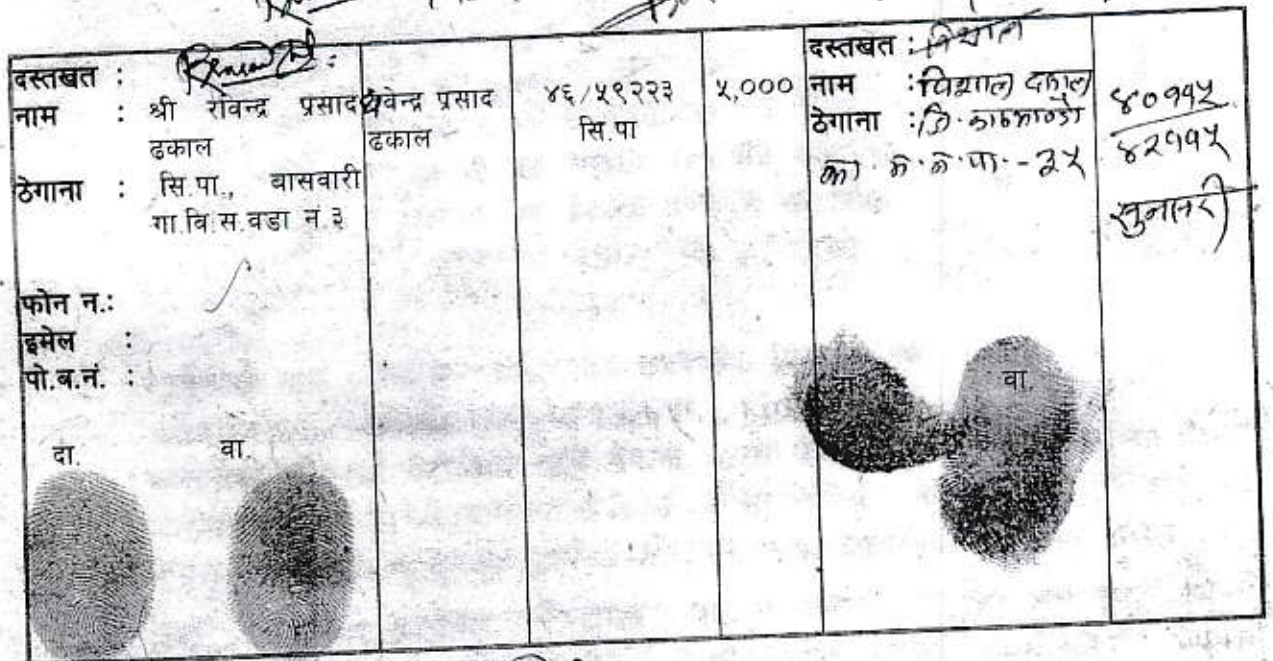 दस्तखत :
नाम : श्री रविन्द्र प्रसाद ढकाल
ठेगाना : सि.पा., बासवारी गा.वि.स.वडा नं.३
फोन न.:
इमेल :
पो.ब.नं. :
दा. वा.
वेन्द्र प्रसाद ढकाल
४६/५९२२३ सि.पा
५,०००
दस्तखत : विशाल
नाम : विशाल ढकाल
ठेगाना : जि. काठमाण्डौ
का. म. न. पा. - ३५
दा. वा.
४०११५
४२११५
सुनसरी